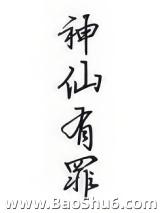 神仙有罪
www.BaoShu6.com